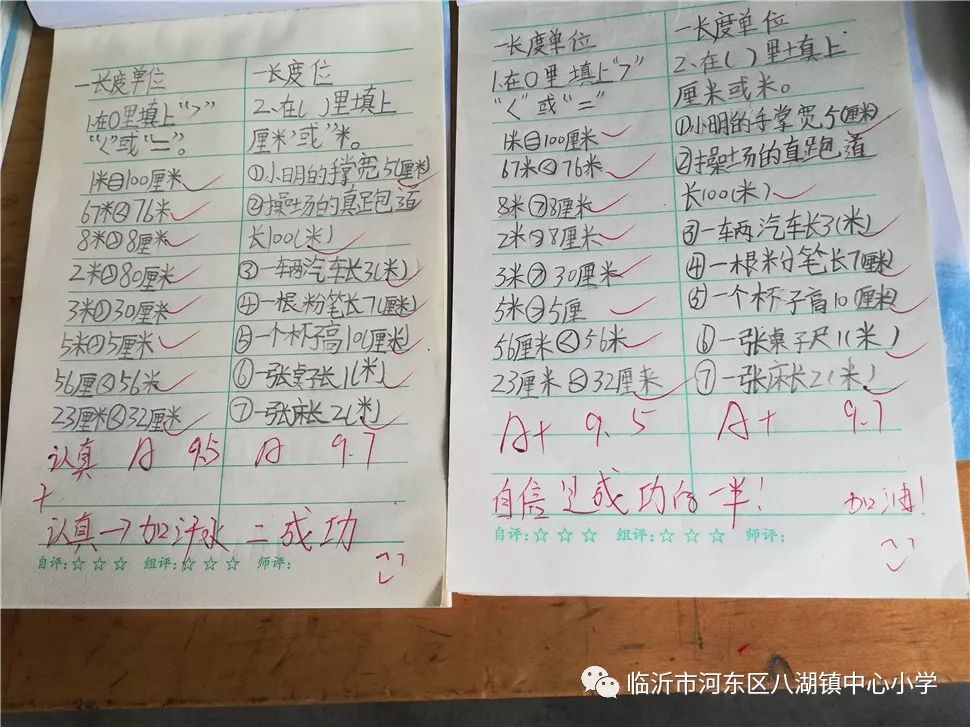 一长度单位
1.在○里填上“>”
“<”或“=”。
1米=100厘米
67米<76米
8米>8厘米
2米>80厘米
3米>30厘米
5米>5厘米
56厘<56米
23厘米<32厘米
一长度位
2.在( )里填上
厘米或米。
①小明的手掌宽5(厘米)
②操场的真跑道
长100(米)
③一车两汽车长3(米)
④一根粉笔长7(厘米)
⑤一个杯子高10(厘米)
⑥一张桌子长1(米)
⑦一张床长2(米)
认真 A 9.5 A 9.7
+
认真→加汗水=成功
自评:☆☆☆ 组评:☆☆☆ 师评:
一长度单位
1.在○里填上“>”
“<”或“=”
1米=100厘米
67米<76米
8米>8厘米
2米>8厘米
3米>30厘米
5米>5厘
56厘米<56米
23厘米<32厘米
一长度单位
2.在( )里填上
厘米或米。
①小明的手掌宽5(厘米)
②操场的直跑道
长100(米)
③一车两汽车长3(米)
④一根粉笔长7(厘米)
⑤一个杯子高10(厘米)
⑥一张桌子尺1(米)
⑦一张床长2(米)
A+ 9.5 A+ 9.7
自信是成功的一半! 加油!
自评:☆☆☆ 组评:☆☆☆ 师评:
临沂市河东区八湖镇中心小学